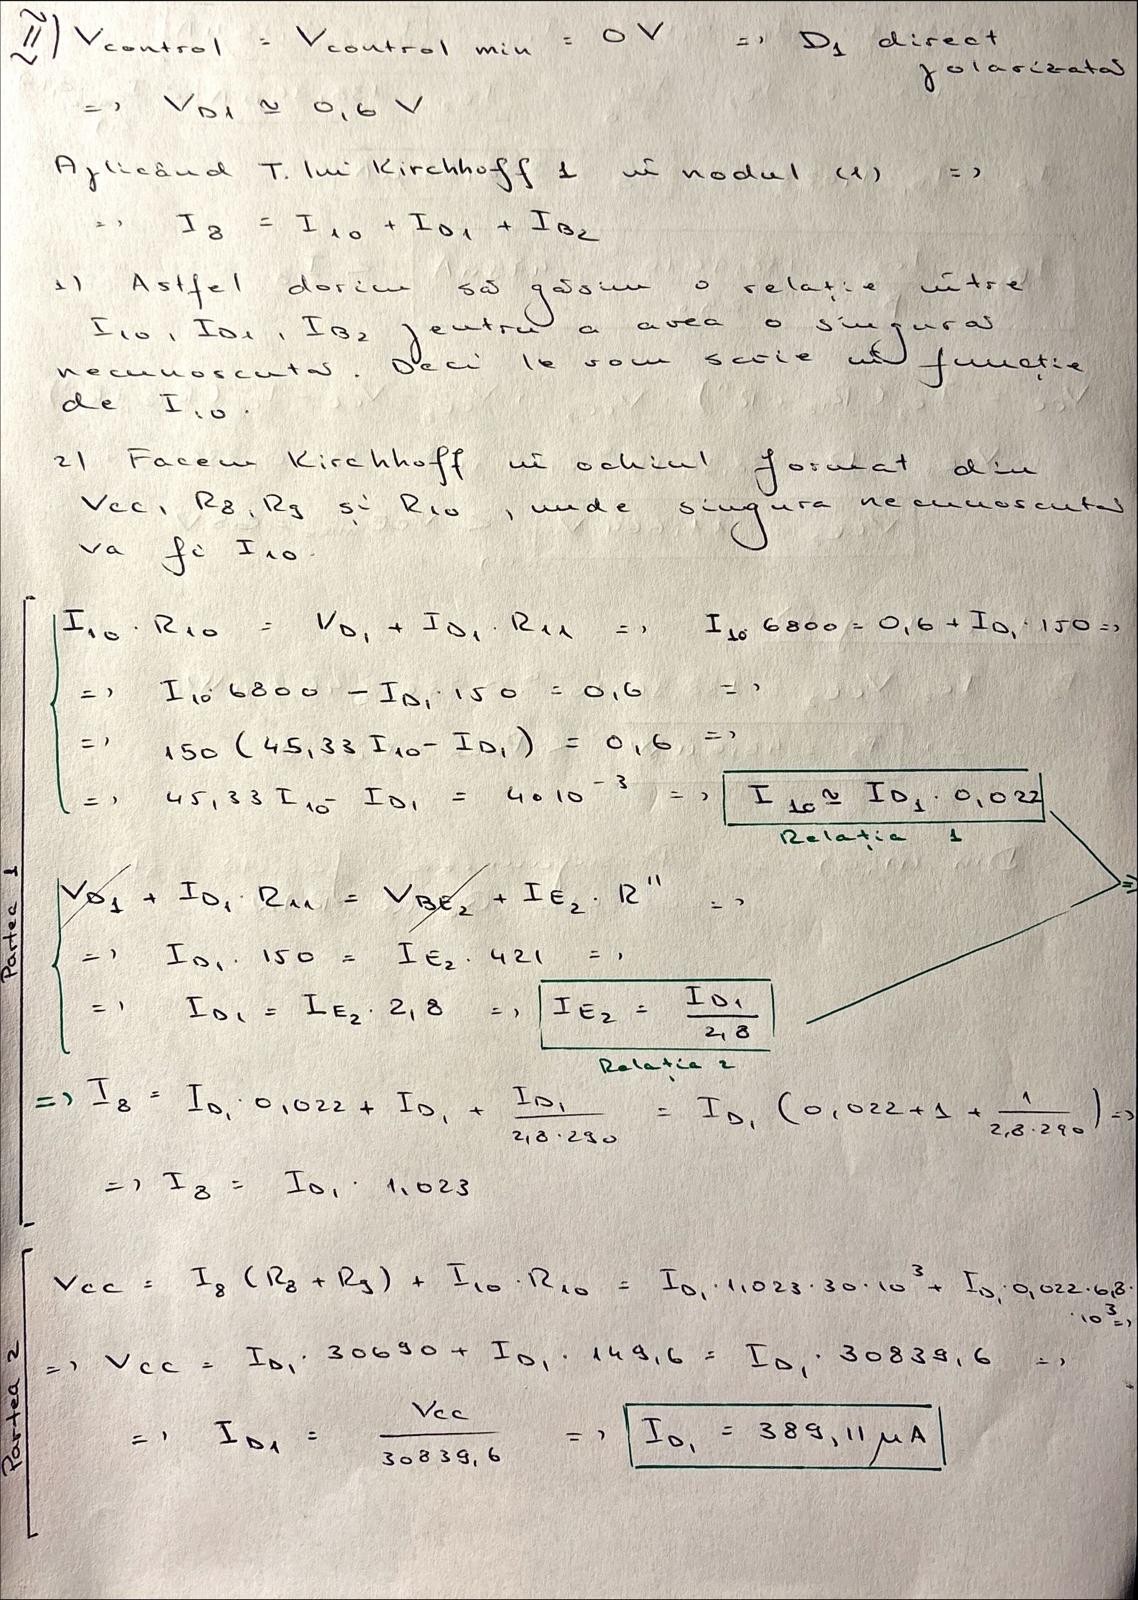 II) Vcontrol = Vcontrol min = 0 V => D1 direct
polarizată
=> VD1 ≃ 0,6 V
Aplicând T. lui Kirchhoff 1 în nodul (1) =>
=> I8 = I10 + ID1 + IB2
1) Astfel dorim să găsim o relație între
I10, ID1, IB2 pentru a avea o singură
necunoscută. Deci le vom scrie în funcție
de I10.
2) Facem Kirchhoff în ochiul format din
Vcc, R8, R9 și R10, unde singura necunoscută
va fi I10.
Partea 1
I10 · R10 = VD1 + ID1 · R11 => I10 · 6800 = 0,6 + ID1 · 150 =>
=> I10 · 6800 - ID1 · 150 = 0,6 =>
=> 150 (45,33 I10 - ID1) = 0,6 =>
=> 45,33 I10 - ID1 = 4·10⁻³ => I10 ≃ ID1 · 0,022
Relația 1
VD1 + ID1 · R11 = VBE2 + IE2 · R'' =>
=> ID1 · 150 = IE2 · 421 =>
=> ID1 = IE2 · 2,8 => IE2 = ID1/2,8
Relația 2
=> I8 = ID1 · 0,022 + ID1 + ID1/(2,8·290) = ID1 (0,022 + 1 + 1/(2,8·290)) =>
=> I8 = ID1 · 1,023
Partea 2
Vcc = I8 (R8 + R9) + I10 · R10 = ID1 · 1,023 · 30 · 10³ + ID1 · 0,022 · 6,8 ·
· 10³ =>
=> Vcc = ID1 · 30690 + ID1 · 149,6 = ID1 · 30839,6 =>
=> ID1 = Vcc/30839,6 => ID1 = 389,11 μA